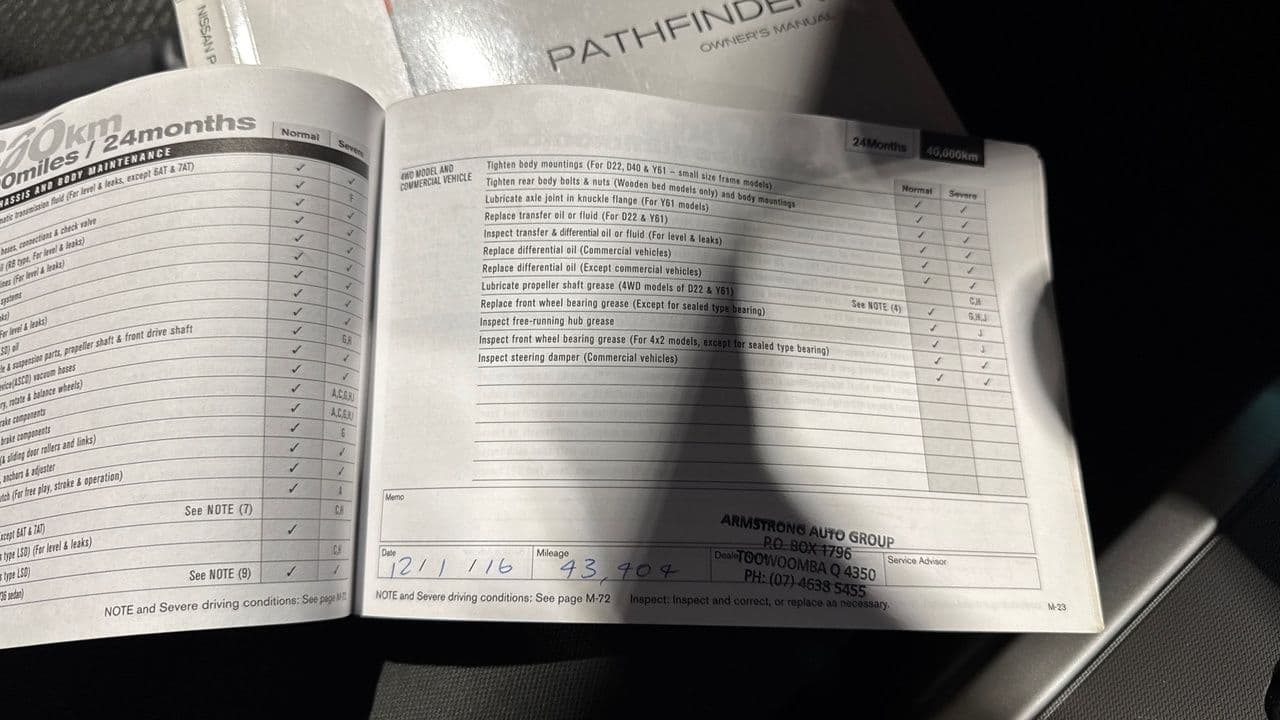 NISSAN P
PATHFINDER
OWNER'S MANUAL
km
miles / 24months
Normal
Severe
CHASSIS AND BODY MAINTENANCE
matic transmission fluid (For level & leaks, except 6AT & 7AT) ✓ ✓
✓ F
hoses, connections & check valve ✓ ✓
il (RB type, For level & leaks) ✓ ✓
lines (For level & leaks) ✓ ✓
systems ✓ ✓
ks)
For level & leaks)
SD) oil G,H
le & suspension parts, propeller shaft & front drive shaft
evice(ASCD) vacuum hoses
ry, rotate & balance wheels)
rake components
brake components
(& sliding door rollers and links)
, anchors & adjuster
utch (For free play, stroke & operation)
See NOTE (7)
xcept 6AT & 7AT)
s type LSD) (For level & leaks)
s type LSD)
See NOTE (9)
NOTE and Severe driving conditions: See page M-72
24Months 40,000km
4WD MODEL AND
COMMERCIAL VEHICLE
Normal Severe
Tighten body mountings (For D22, D40 & Y61 – small size frame models) ✓ ✓
Tighten rear body bolts & nuts (Wooden bed models only) and body mountings ✓ ✓
Lubricate axle joint in knuckle flange (For Y61 models) ✓ ✓
Replace transfer oil or fluid (For D22 & Y61) ✓ ✓
Inspect transfer & differential oil or fluid (For level & leaks) ✓ ✓
Replace differential oil (Commercial vehicles) C,H
Replace differential oil (Except commercial vehicles) See NOTE (4) ✓ G,H,J
Lubricate propeller shaft grease (4WD models of D22 & Y61) ✓ J
Replace front wheel bearing grease (Except for sealed type bearing) ✓ J
Inspect free-running hub grease ✓ ✓
Inspect front wheel bearing grease (For 4x2 models, except for sealed type bearing) ✓ ✓
Inspect steering damper (Commercial vehicles)
Memo
ARMSTRONG AUTO GROUP
P.O. BOX 1796
TOOWOOMBA Q 4350
PH: (07) 4638 5455
Date
12/1/16
Mileage
43,404
Deale
Service Advisor
NOTE and Severe driving conditions: See page M-72 Inspect: Inspect and correct, or replace as necessary.
M-23